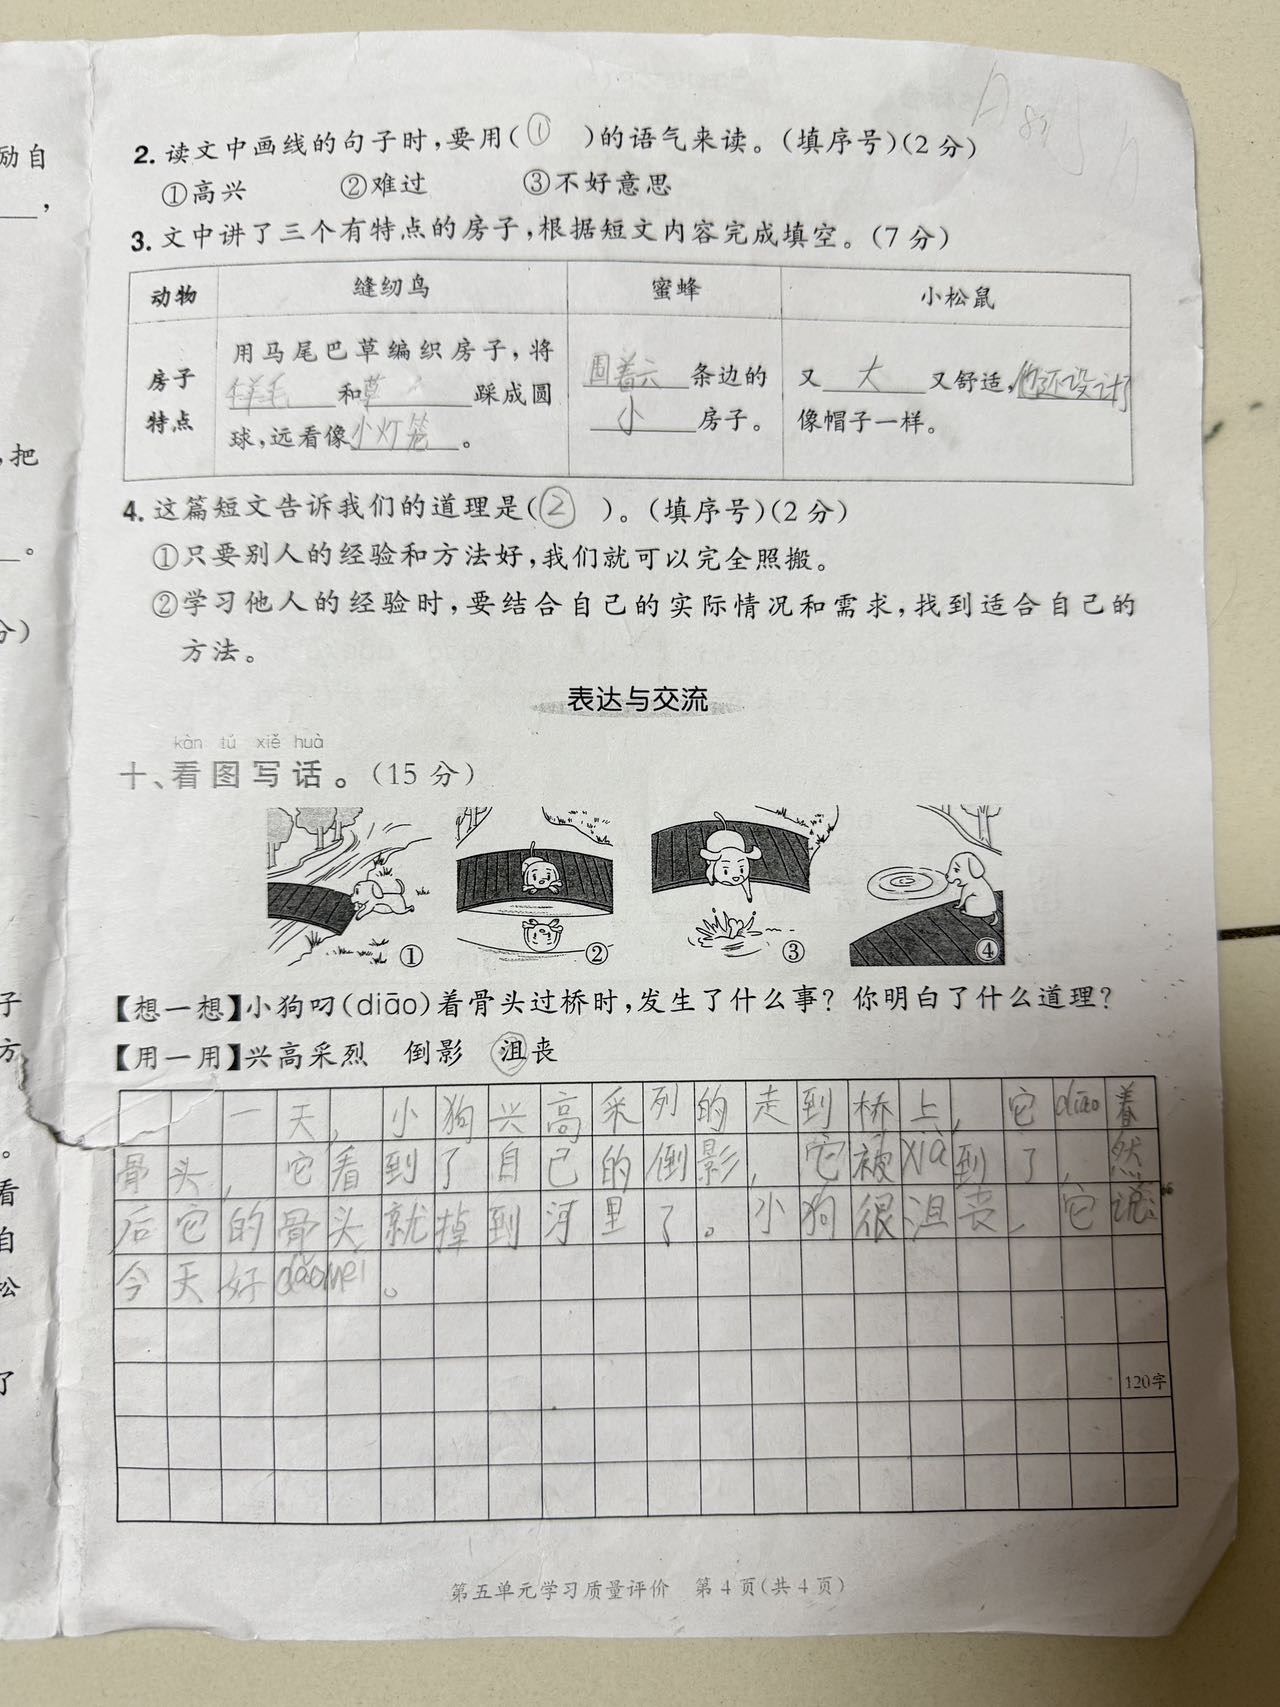 励自
，
，把
。
分）
子
方
。
看
自
松
了
2. 读文中画线的句子时,要用(① )的语气来读。(填序号)(2分)
①高兴 ②难过 ③不好意思
3. 文中讲了三个有特点的房子,根据短文内容完成填空。(7分)
动物 缝纫鸟 蜜蜂 小松鼠
房子特点
用马尾巴草编织房子,将
羊毛和草踩成圆
球,远看像小灯笼。
围着六条边的
小房子。
又大又舒适,他还设计了
像帽子一样。
4. 这篇短文告诉我们的道理是(② )。(填序号)(2分)
①只要别人的经验和方法好,我们就可以完全照搬。
②学习他人的经验时,要结合自己的实际情况和需求,找到适合自己的
方法。
表达与交流
kàn tú xiě huà
十、看图写话。(15分)
① ② ③ ④
【想一想】小狗叼(diāo)着骨头过桥时,发生了什么事? 你明白了什么道理?
【用一用】兴高采烈 倒影 沮丧
一天,小狗兴高采列的走到桥上,它diāo着
骨头,它看到了自己的倒影,它被xià到了,然
后它的骨头就掉到河里了。小狗很沮丧,它说:“
今天好dǎoméi。
120字
第五单元学习质量评价 第4页(共4页)